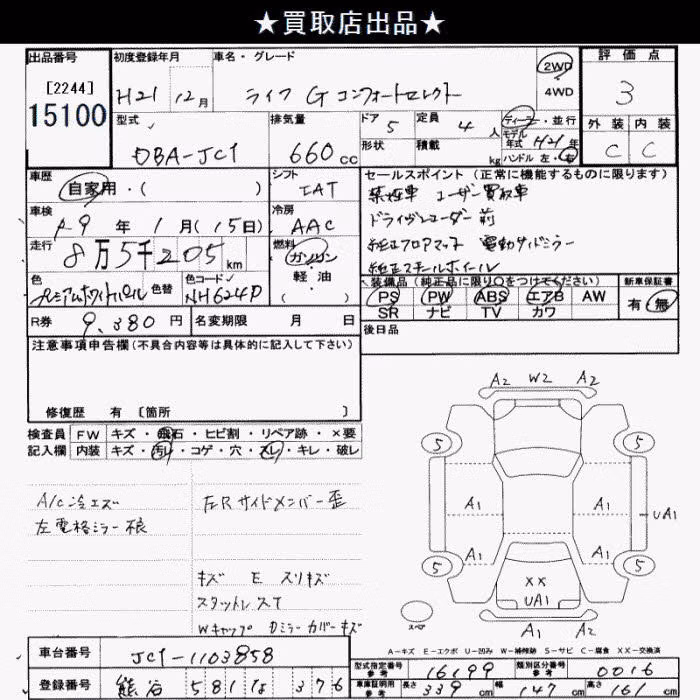 ★買取店出品★
出品番号
[2244]
15100
初度登録年月
H21 12月
車名・グレード
ライフ G コンフォートセレクト
2WD
4WD
評価点
3
外装 内装
C C
型式
DBA-JC1
排気量
660cc
ドア 5
定員 4人
形状
積載 kg
ディーラー・並行
モデル年式 H21年
ハンドル 左・右
車歴
自家用・( )
シフト
IAT
車検
R9年 1月(15日)
冷房
AAC
走行
8万5千205km
燃料
ガソリン
軽・油
( )
色
プレミアムホワイトパール
色替
色コード
NH624P
R券 9,380円
名変期限 月 日
セールスポイント(正常に機能するものに限ります)
禁煙車 ユーザー買取車
ドライブレコーダー前
純正フロアマット 電動サイドミラー
純正スチールホイール
装備品(純正品に限り○をつけてください)
PS PW ABS エアB AW
SR ナビ TV カワ
新車保証書
有・無
後日品
注意事項申告欄(不具合内容等は具体的に記入して下さい)
修復歴 有 [箇所 ]
検査員記入欄
FW キズ・飛石・ヒビ割・リペア跡・×要
内装 キズ・汚れ・コゲ・穴・スレ・キレ・破レ
A/C冷エズ
左電格ミラー不良
左Rサイドメンバー歪
キズ E スリキズ
スタットレスT
Wキャップ Dミラーカバーキズ
A2 W2 A2
5 5
A1 A1
UA1
A1 A1
5 5
XX
UA1
スペア
A1 A2
A-キズ E-エクボ U-凹み W-補修跡 S-サビ C-腐食 XX-交換済
車台番号 JC1-1103858
登録番号 熊谷 581 な 376
型式指定番号 参考 16199
類別区分番号 参考 0016
車庫証明用 参考 長さ 339cm 幅 147cm 高さ 161cm